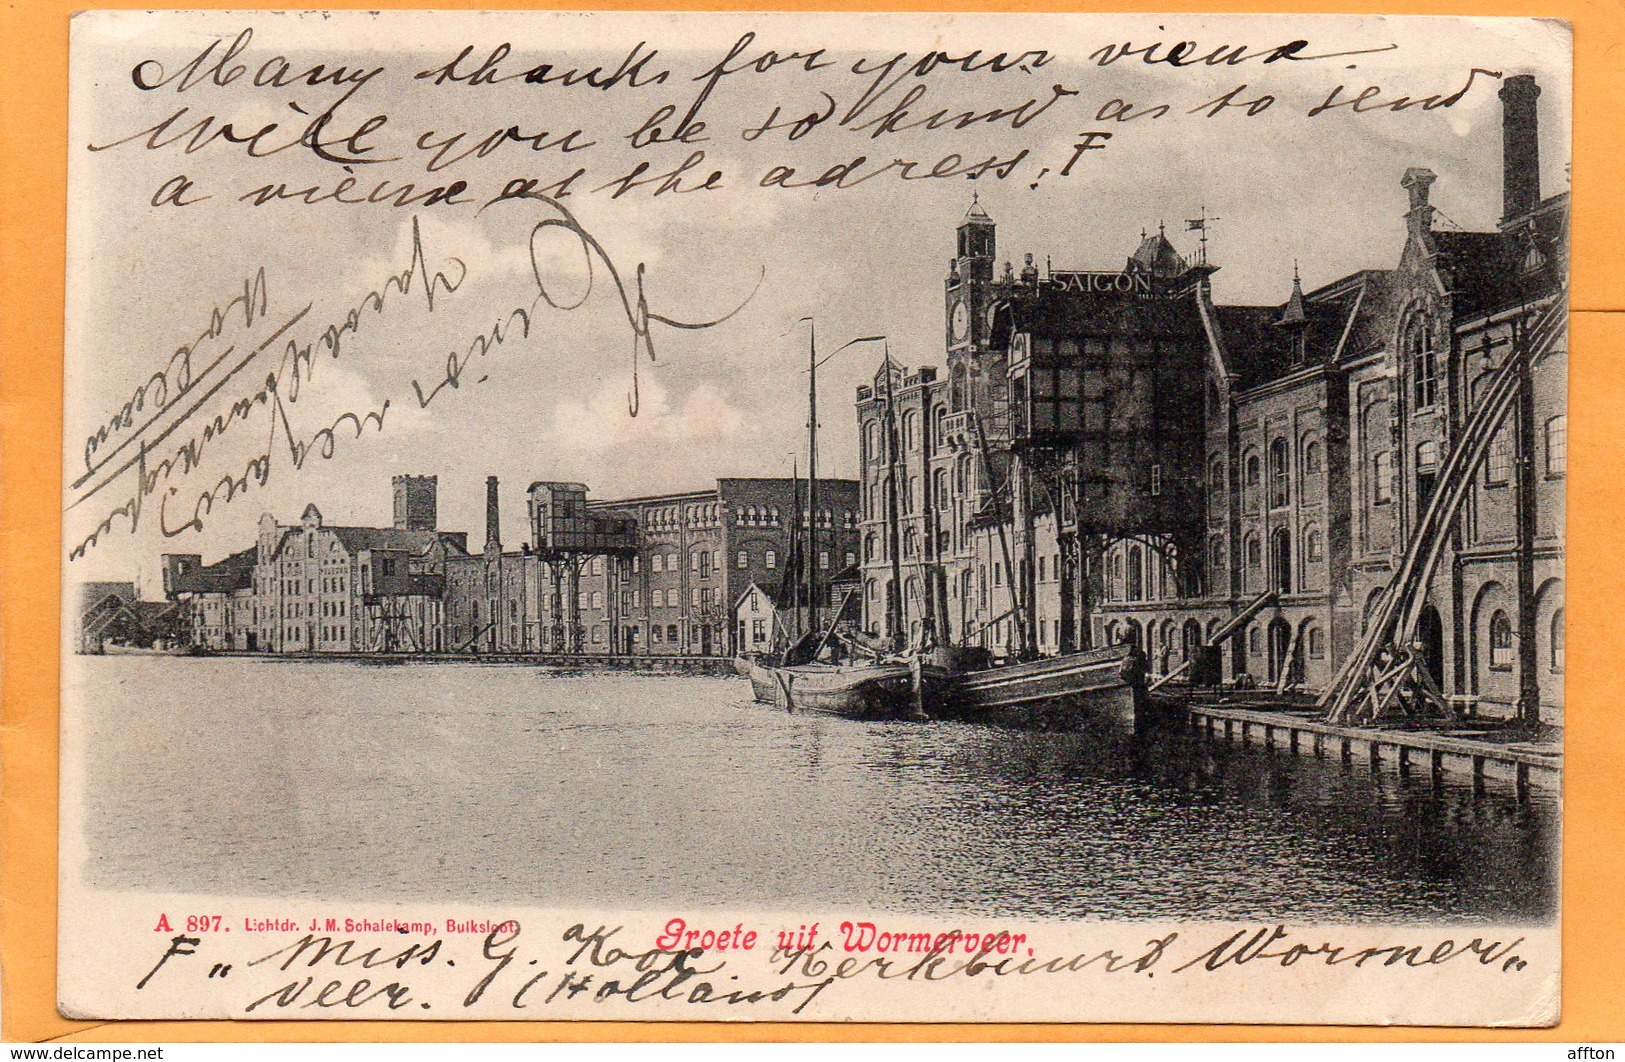 Many thanks for your vieux.
Will you be so kind as to send
a vieux at the adress: F
SAIGON
A 897. Lichtdr. J. M. Schalekamp, Buiksloot.
Groete uit Wormerveer.
F „ Miss. G. Koc Kerkbuurt. Wormer„
veer. (Holland)
www.delcampe.net
affton